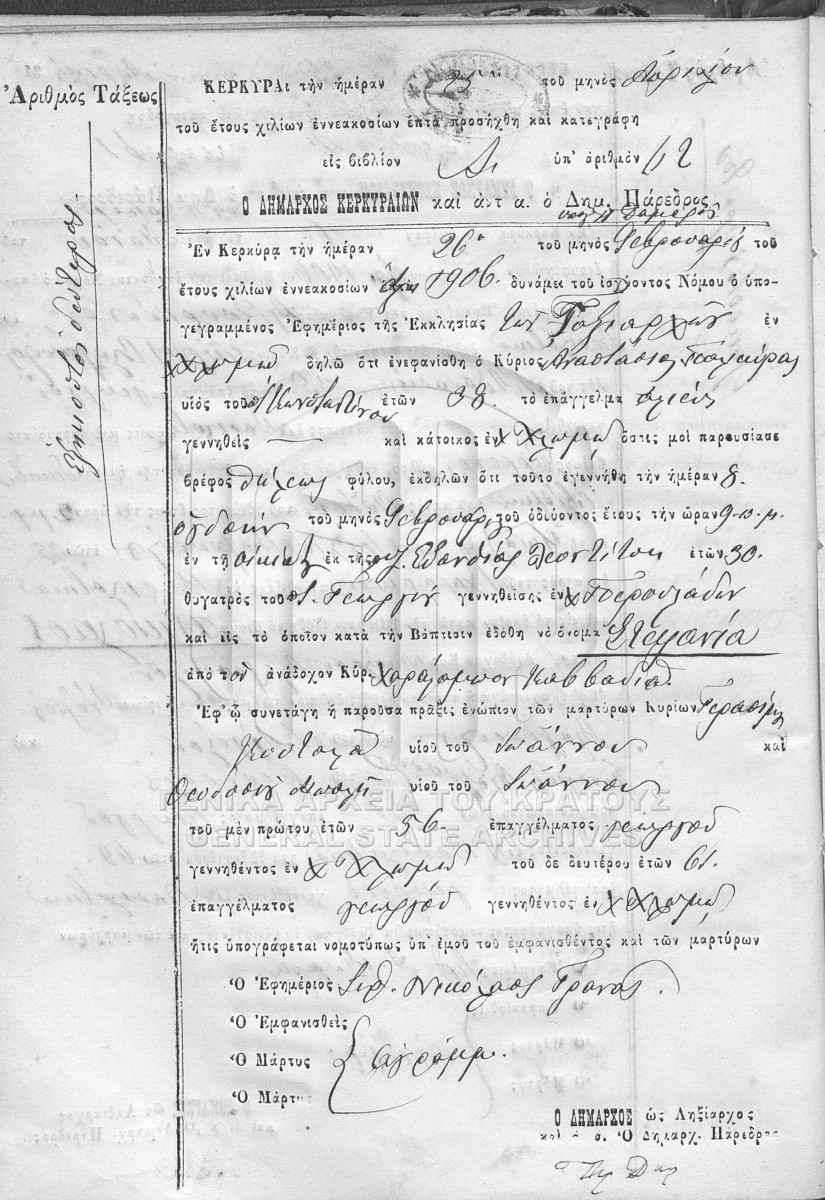 Ἀριθμὸς Τάξεως
Ἑξηκοστὸν δεύτερον
ΚΕΡΚΥΡΑι τὴν ἡμέραν 25 τοῦ μηνὸς Ἀπριλίου
τοῦ ἔτους χιλίων ἐννεακοσίων ἑπτὰ προσήχθη καὶ κατεγράφη
εἰς βιβλίον Α. ὑπ' ἀριθμὸν 62
Ο ΔΗΜΑΡΧΟΣ ΚΕΡΚΥΡΑΙΩΝ καὶ ἀντ α. ὁ Δημ. Πάρεδρος
Ἐν Κερκύρᾳ τὴν ἡμέραν 26ῃ τοῦ μηνὸς Φεβρουαρίου τοῦ
ἔτους χιλίων ἐννεακοσίων ἕξ 1906. δυνάμει τοῦ ἰσχύοντος Νόμου ὁ ὑπο-
γεγραμμένος Ἐφημέριος τῆς Ἐκκλησίας τῶν Ταξιαρχῶν ἐν
χ Χλωμῷ δηλῶ ὅτι ἐνεφανίσθη ὁ Κύριος Ἀναστάσιος
υἱὸς τοῦ Κωνσταντίνου ἐτῶν 38. τὸ ἐπάγγελμα ἁλιεύς
γεννηθεὶς — καὶ κάτοικος ἐν χ Χλωμῷ ὅστις μοὶ παρουσίασε
βρέφος θήλεως φύλου, ἐκδηλῶν ὅτι τοῦτο ἐγεννήθη τὴν ἡμέραν 8.
ὀγδόην τοῦ μηνὸς Φεβρουαρίου τοῦ ὁδεύοντος ἔτους τὴν ὥραν 9 π. μ.
ἐν τῇ οἰκίᾳ ἐκ τῆς συζ. Εὐανθίας ἐτῶν 30.
θυγατρὸς τοῦ Γεωργίου γεννηθείσης ἐν χ Περουλάδων
καὶ εἰς τὸ ὁποῖον κατὰ τὴν Βάπτισιν ἐδόθη τὸ ὄνομα Στεφανία
ἀπὸ τὸν ἀνάδοχον Κύρ. Χαράλαμπον Καββαδία.
Ἐφ' ᾧ συνετάγη ἡ παροῦσα πρᾶξις ἐνώπιον τῶν μαρτύρων Κυρίων Γερασίμου
υἱοῦ τοῦ Ἰωάννου καὶ
Θεοδοσίου υἱοῦ τοῦ Ἰωάννου
ΓΕΝΙΚΑ ΑΡΧΕΙΑ ΤΟΥ ΚΡΑΤΟΥΣ
τοῦ μὲν πρώτου ἐτῶν 56. ἐπαγγέλματος γεωργοῦ
GENERAL STATE ARCHIVES
γεννηθέντος ἐν χ Χλωμῷ τοῦ δὲ δευτέρου ἐτῶν 61.
ἐπαγγέλματος γεωργοῦ γεννηθέντος ἐν χ Χλωμῷ
ἥτις ὑπογράφεται νομοτύπως ὑπ ἐμοῦ τοῦ ἐμφανισθέντος καὶ τῶν μαρτύρων
Ὁ Ἐφημέριος Νικόλαος
Ὁ Ἐμφανισθεὶς
Ὁ Μάρτυς ἀγράμμ.
Ὁ Μάρτυς
Ο ΔΗΜΑΡΧΟΣ ὡς Ληξίαρχος
καὶ ἀ. α. Ὁ Δημαρχ. Πάρεδρος